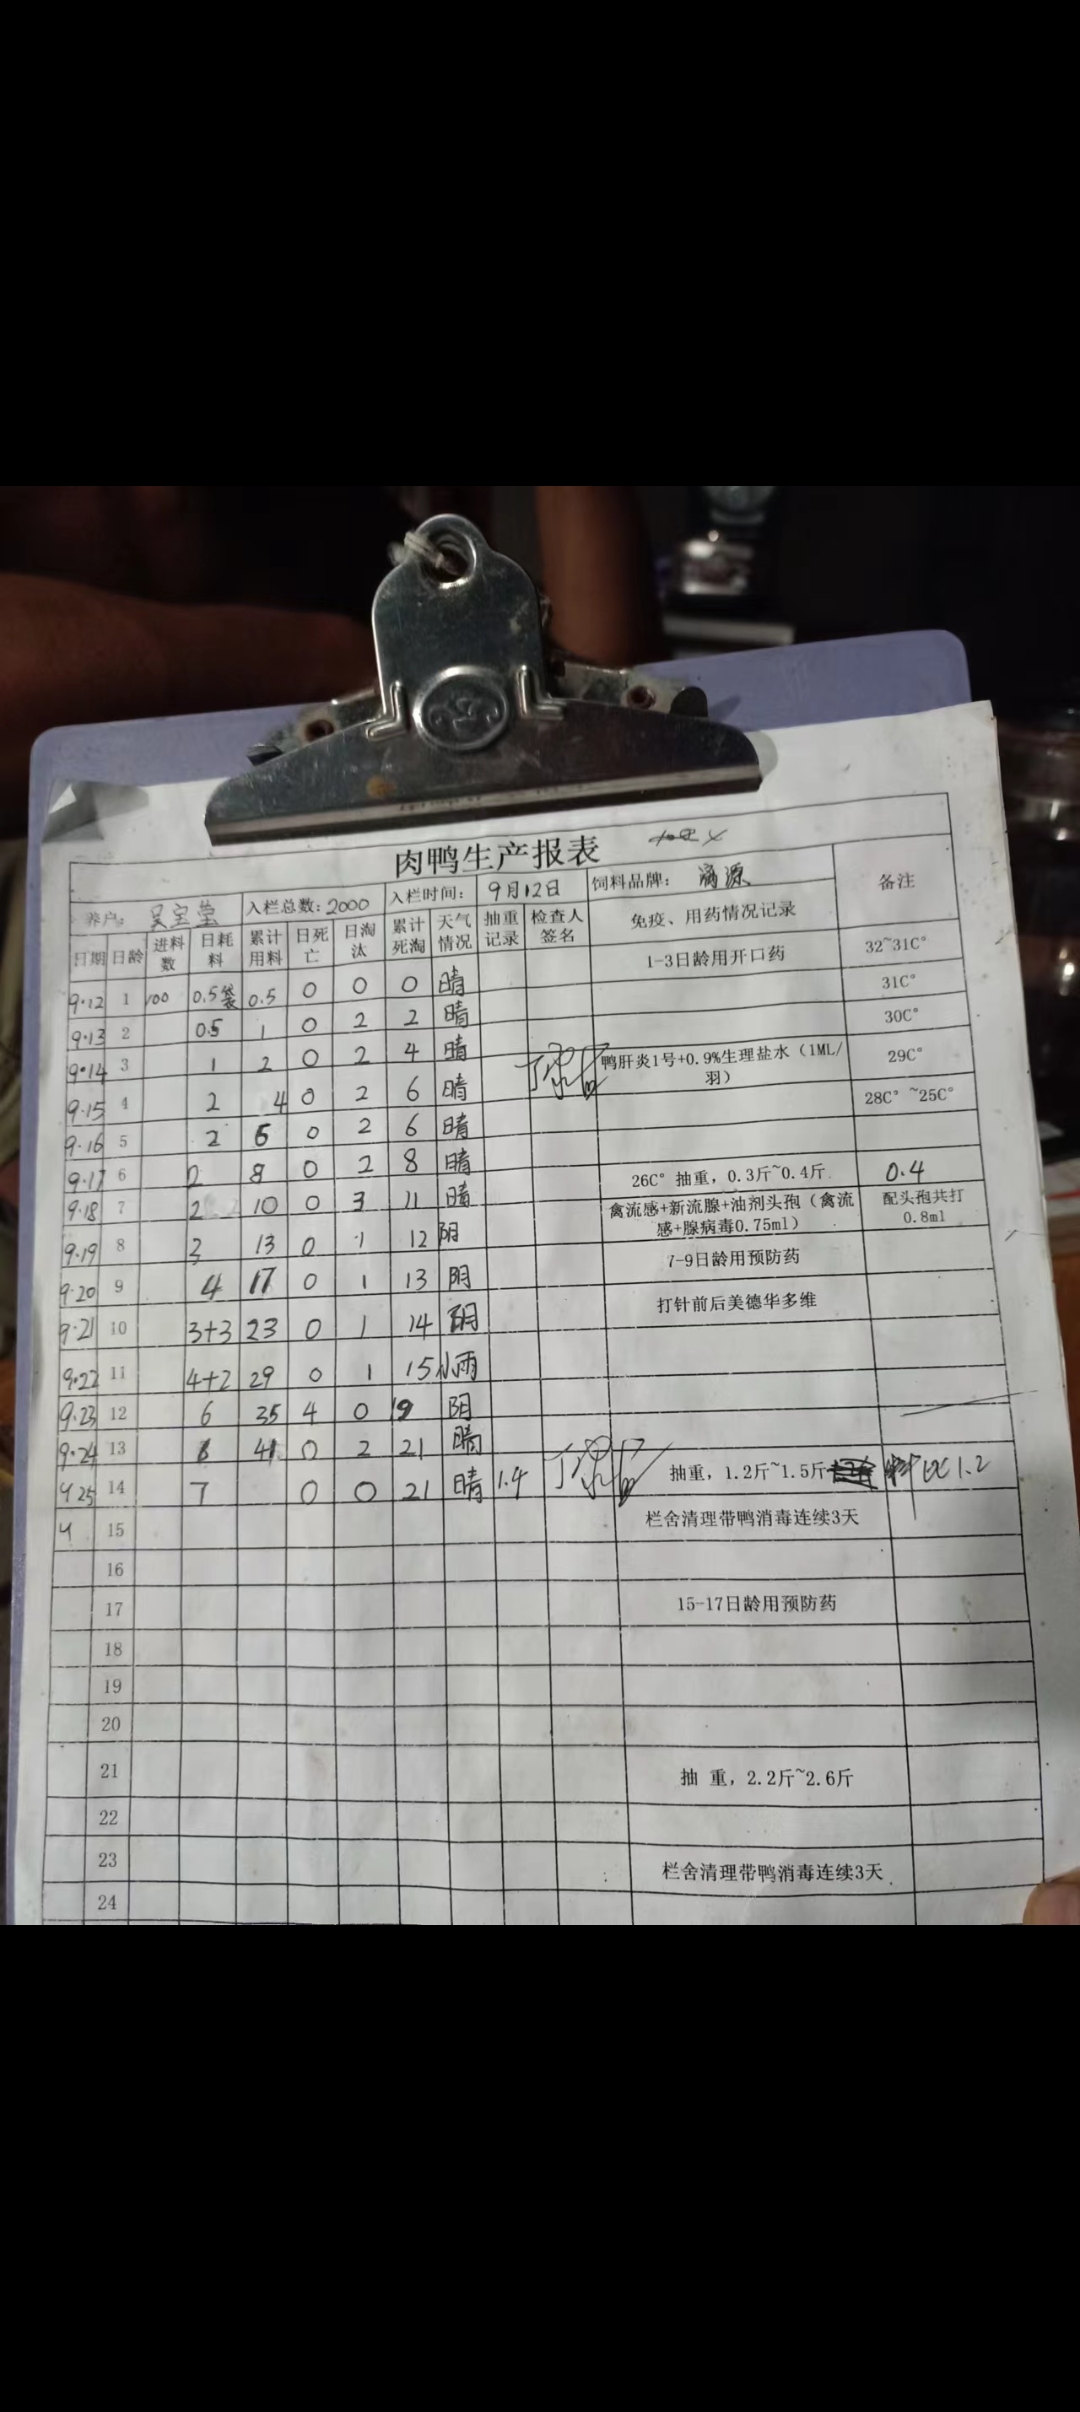 肉鸭生产报表
养户: 入栏总数:2000 入栏时间: 9月12日 饲料品牌: 源 备注
日期 日龄 进料数 日耗料 累计用料 日死亡 日淘汰 累计死淘 天气情况 抽重记录 检查人签名 免疫、用药情况记录
9.12 1 100 0.5袋 0.5 0 0 0 晴 1-3日龄用开口药 32~31C°
9.13 2 0.5 1 0 2 2 晴 31C°
9.14 3 1 2 0 2 4 晴 30C°
9.15 4 2 4 0 2 6 晴 鸭肝炎1号+0.9%生理盐水(1ML/羽) 29C°
9.16 5 2 6 0 2 6 晴 28C°~25C°
9.17 6 2 8 0 2 8 晴
9.18 7 2 10 0 3 11 晴 26C°抽重,0.3斤~0.4斤 0.4
9.19 8 3 13 0 1 12 阴 禽流感+新流腺+油剂头孢(禽流感+腺病毒0.75ml) 配头孢共打0.8ml
9.20 9 4 17 0 1 13 阴 7-9日龄用预防药
9.21 10 3+3 23 0 1 14 阴 打针前后美德华多维
9.22 11 4+2 29 0 1 15 小雨
9.23 12 6 35 4 0 19 阴
9.24 13 6 41 0 2 21 晴
9.25 14 7 0 0 21 晴 1.4 抽重,1.2斤~1.5斤 料比1.2
15 栏舍清理带鸭消毒连续3天
16
17 15-17日龄用预防药
18
19
20
21 抽 重,2.2斤~2.6斤
22
23 栏舍清理带鸭消毒连续3天
24